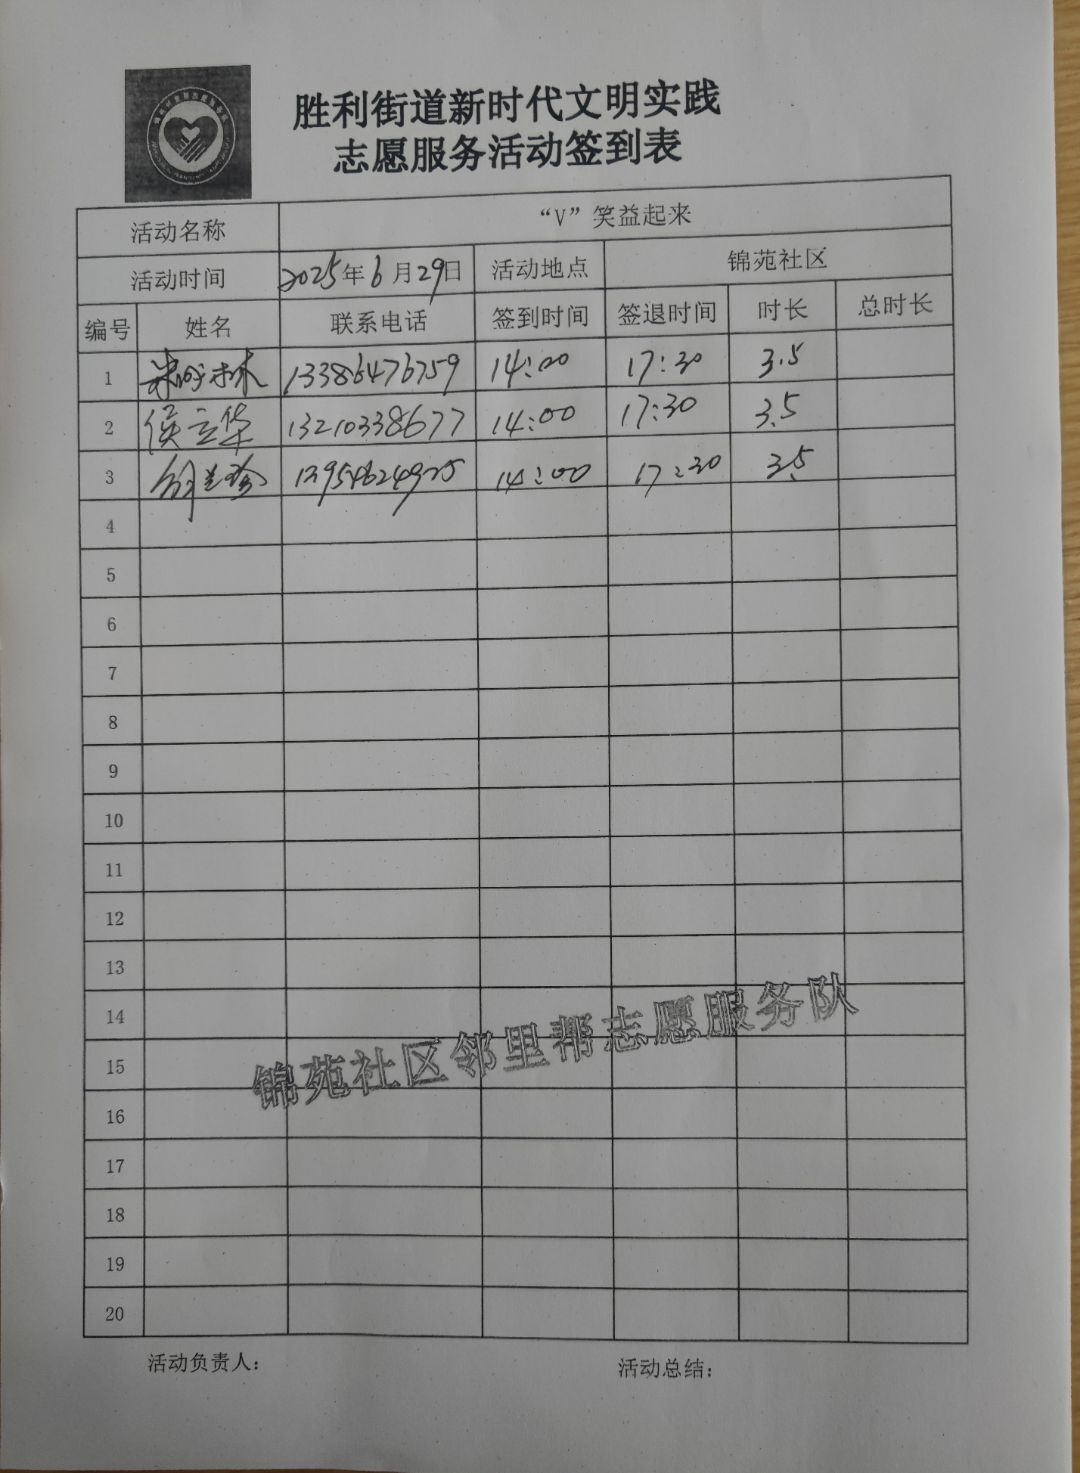 胜利街道新时代文明实践
志愿服务活动签到表
活动名称 “V”笑益起来
活动时间 2025年6月29日 活动地点 锦苑社区
编号 姓名 联系电话 签到时间 签退时间 时长 总时长
1 13386476759 14:00 17:30 3.5
2 侯立华 13210338677 14:00 17:30 3.5
3 13954624925 14:00 17:30 3.5
4
5
6
7
8
9
10
11
12
13
14
15
16
17
18
19
20
锦苑社区邻里帮志愿服务队
活动负责人： 活动总结：